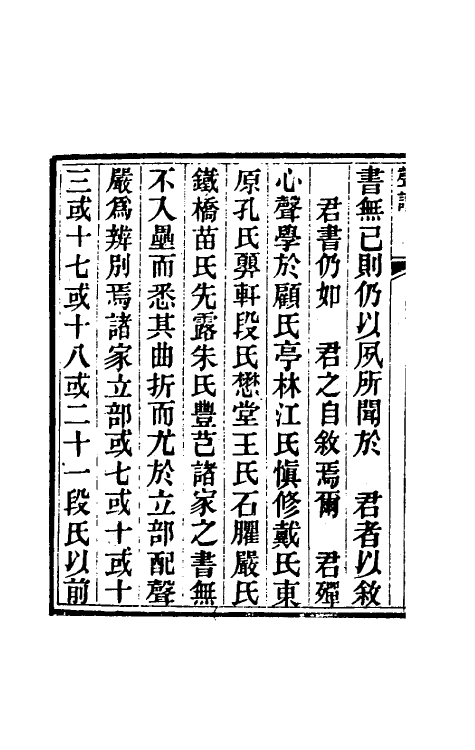 書無已則仍以夙所聞於　君者以敘
君書仍如　君之自敘焉爾　君殫
心聲學於顧氏亭林江氏愼修戴氏東
原孔氏顨軒段氏懋堂王氏石臞嚴氏
鐵橋苗氏先露朱氏豐芑諸家之書無
不入壘而悉其曲折而尤於立部配聲
嚴爲辨別焉諸家立部或七或十或十
三或十七或十八或二十一段氏以前